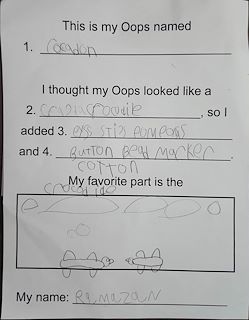 This is my Oops named
1.
I thought my Oops looked like a
2. , so I
added 3. pompoms
and 4. Button Bead Marker.
cotton
My favorite part is the
My name: Ramazan